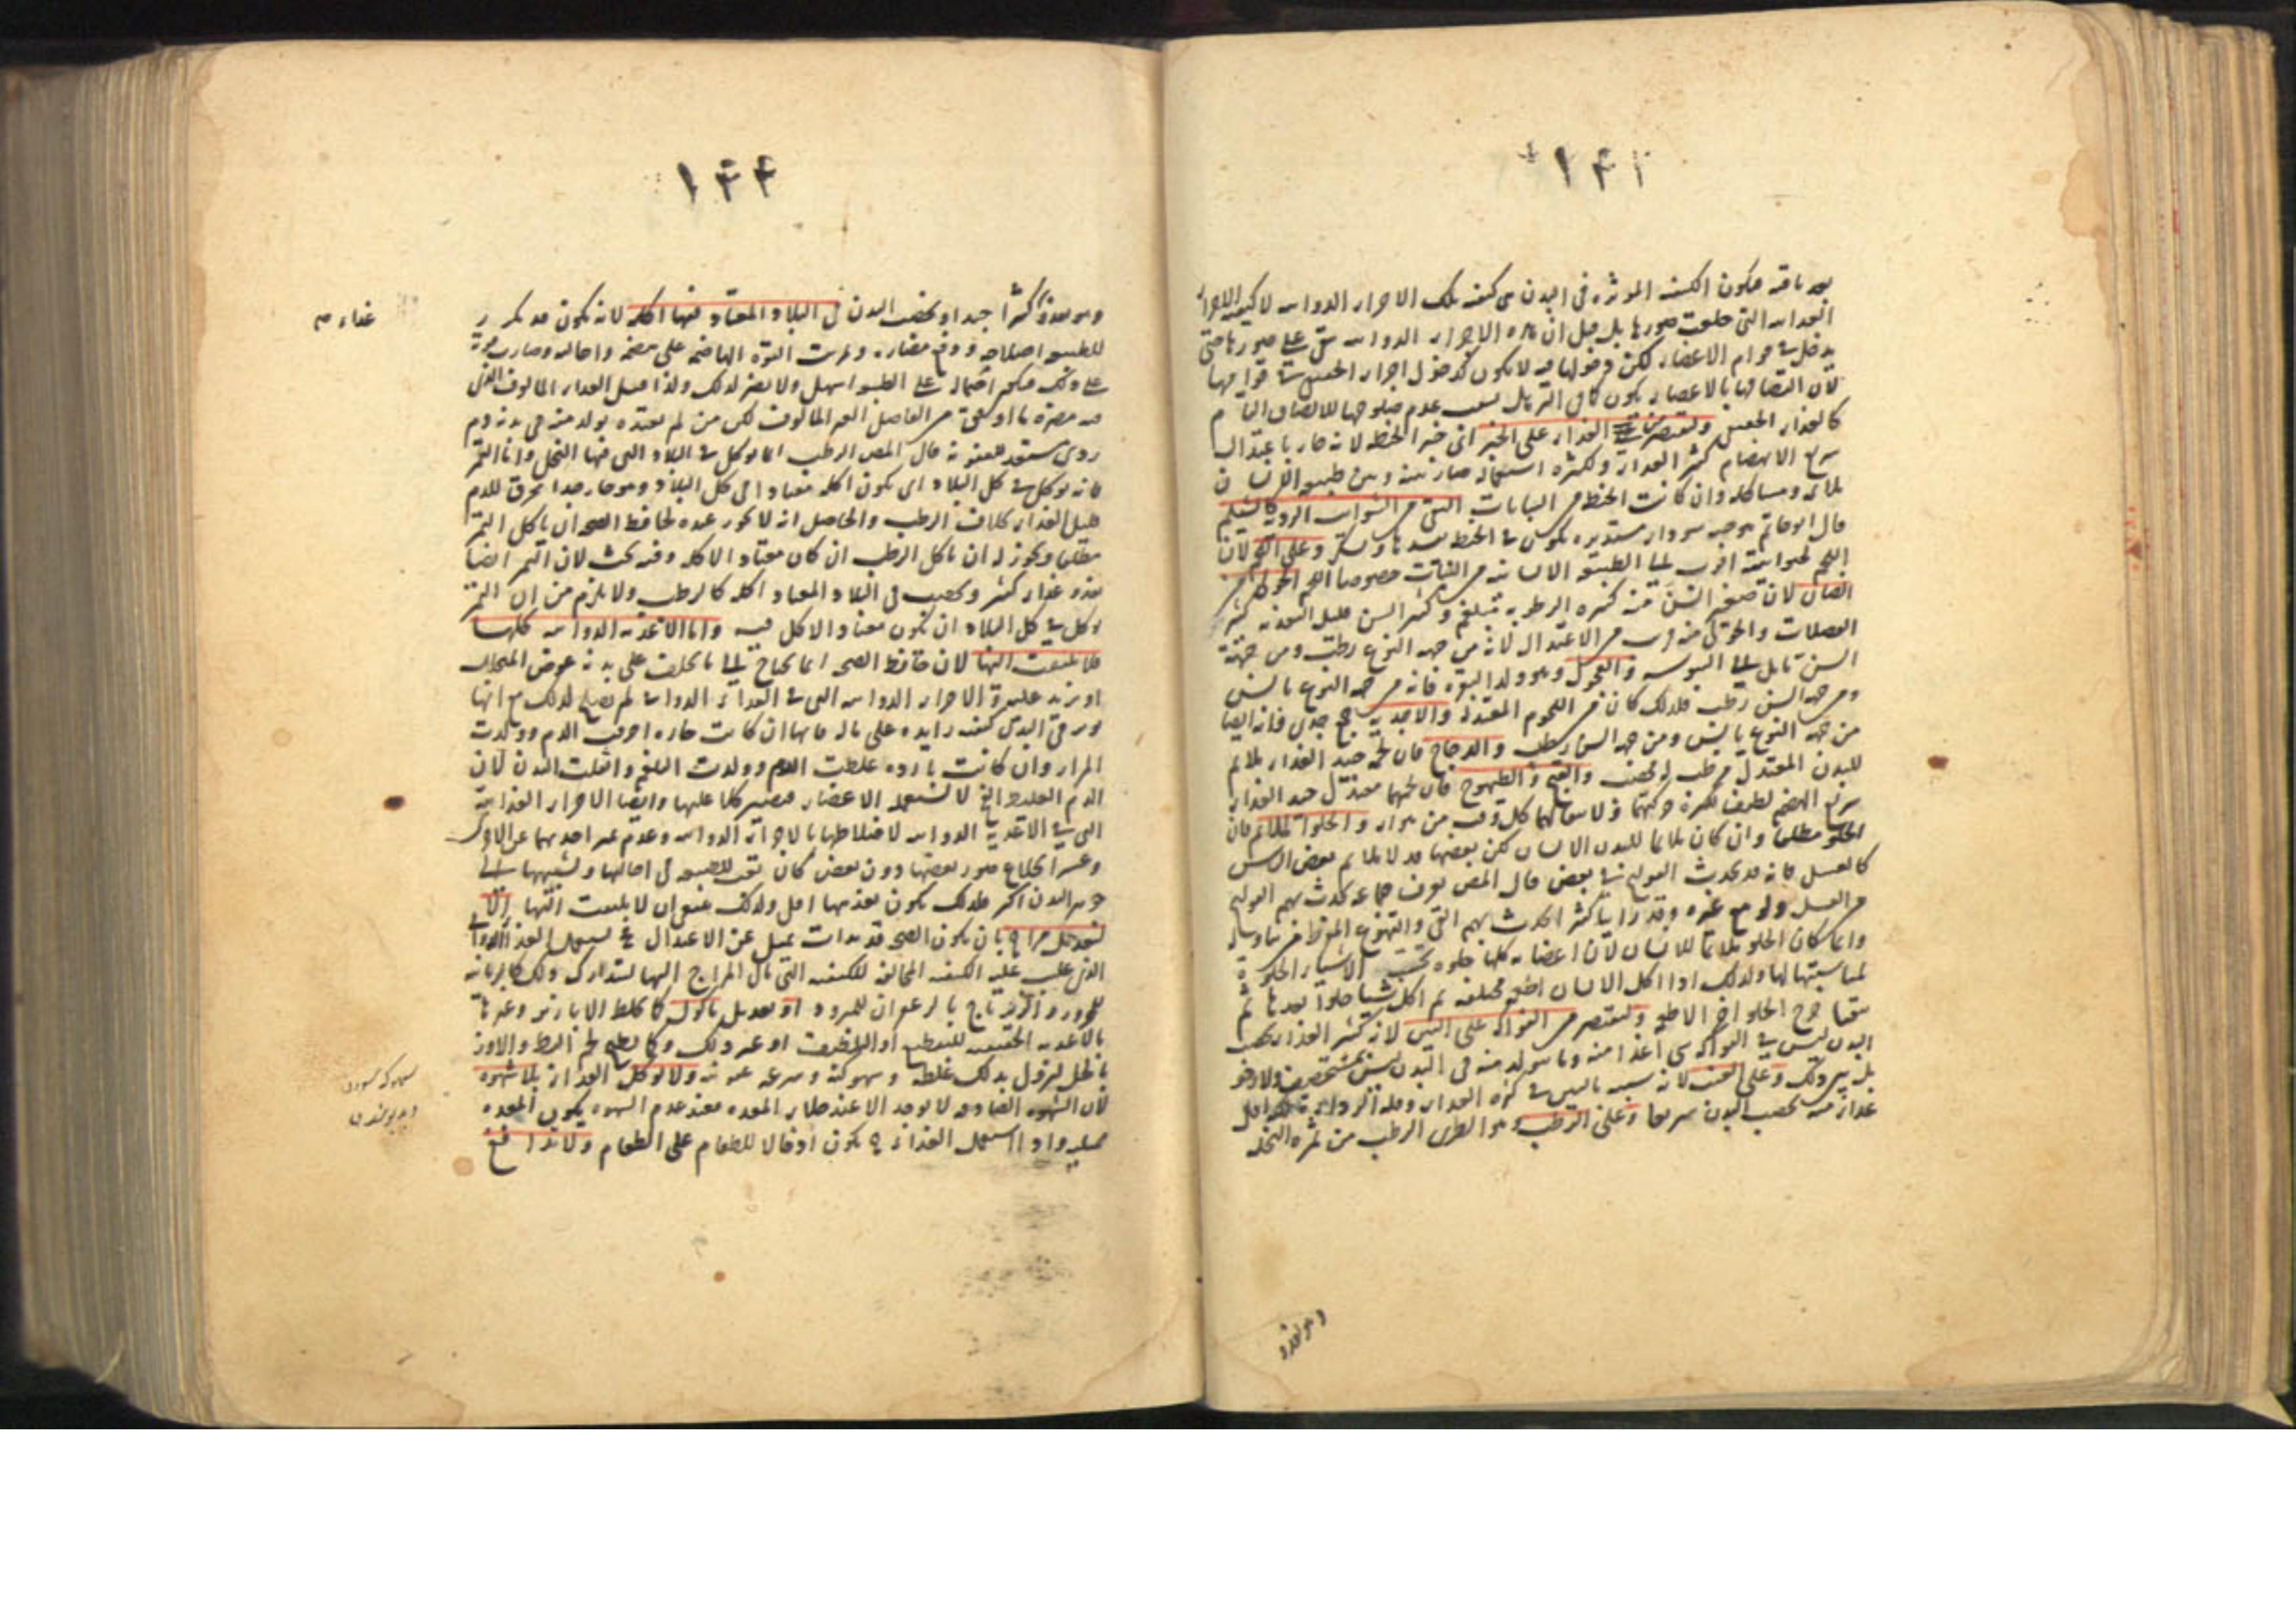 ١٤٣
فيكون الكيفية المؤثرة في البدن هي كيفية تلك الاجزاء الدوائية لا كيفية الاجزاء
الغذائية التي خلعت صورها بل قيل ان هذه الاجزاء الدوائية تبقى على صورها حتى
يدخل في قوام الاعضاء لكن دخولها فيه لا يكون كدخول اجزاء الحقيقي في قوامها
لان التصاقها بالاعضاء يكون كما في الترهل بسبب عدم صلوحها للالتصاق التام
كالغذاء الحقيقي وليقتصر من الغذاء على الخبز اي خبز الحنطة لانه حار باعتدال
سريع الانهضام كثير الغذاء ولكثرة استعماله صار بينه وبين طبيعة الانسان
ملائمة ومشاكلة وان كانت الحنطة من النباتات النقي من الشوائب الردية كالشيلم
قال ابو حاتم هو حب مستدير يكون في الحنطة يفسدها ويسكر وعلى اللحم لان
اللحم لحيوانيته اقرب الى الطبيعة الانسانية من النبات خصوصا اللحم الحولي من
الضان لان صغير السن منه كثير الرطوبة مبلغم وكبير السن قليل التغذية كثير
الفضلات والحولي منه قريب من الاعتدال لانه من جهة النوع رطب ومن جهة
السن مايل الى اليبوسة والعجول وهو ولد البقر فانه من جهة النوع يابس
ومن جهة السن رطب فلذلك كان من اللحوم المعتدلة والاجدية جمع جدي فانه ايضا
من جهة النوع يابس ومن جهة السن رطب والدجاج فان لحمه جيد الغذاء ملائم
للبدن المعتدل مرطب له مخصب والقبج والطيهوج فان لحمهما معتدل جيد الغذاء
سريع الهضم لطيف لكثرة حركتهما كل وقت من هواء والحلواء الملائم فان
الحلو مطلقا وان كان ملائما للبدن الانساني لكن بعضها قد لا يلائم بعض الناس
كالعسل فانه قد يحدث القولنج في بعض قال المص نعرف جماعة يحدث بهم القولنج
من العسل ولو مع غيره وقد راينا كثيرا يحدث بهم القي والتهوع المفرط من تناوله
وانما كان الحلو ملائما للانسان لان اعضاءه كلها حلوة تحب الاشياء الحلوة
لمناسبتها لها ولذلك اذا اكل الانسان اطعمة مختلفة ثم اكل شيئا حلوا بعدها ثم
تقيا خرج الحلو اخر الاطعمة وليقتصر من الفواكه على التين لانه كثير الغذاء يخصب
البدن ليس في الفواكه شي اغذا منه وما يتولد منه في البدن ليس بمستحصف ولا رخو
بل بين ذلك وعلى العنب لانه شبيه بالتين في كثرة الغذاء وقلة الرداءة لكنه اقل
غذاء منه يخصب البدن سريعا وعلى الرطب وهو الطري الرطب من ثمرة النخلة
وهو يغذو
١٤٤
وهو يغذو كثيرا جيدا ويخصب البدن في البلاد المعتاد فيها اكله لانه يكون قد تكرر
للطبيعة اصلاحه ودفع مضاره ومرنت القوة الهاضمة على هضمه واحالته وصارت مجربة
على ذلك فيكون احتماله على الطبيعة اسهل ولا يضر لذلك ولذا قيل الغذاء المالوف الذي
فيه مضرة ما اوفق من الفاضل الغير المالوف لكن من لم يعتده يولد منه في بدنه دم
ردي مستعد للعفونة قال المص الرطب انما يوكل في البلاد التي فيها النخل واما التمر
فانه يوكل في كل البلاد اي يكون اكله معتادا في كل البلاد وهو حار جدا محرق للدم
قليل الغذاء بخلاف الرطب والحاصل انه لا يجوز عنده لحافظ الصحة ان ياكل التمر
مطلقا ويجوز له ان ياكل الرطب ان كان معتاد الاكل وفيه بحث لان التمر ايضا
يغذو غذاء كثيرا ويخصب في البلاد المعتاد اكله كالرطب ولا يلزم من ان التمر
يوكل في كل البلاد ان يكون معتاد الاكل فيه واما الاغذية الدوائية كلها
فلا يلتفت اليها لان حافظ الصحة انما يحتاج الى ما يخلف على بدنه عوض المتحلل
او يزيد عليه والاجزاء الدوائية التي في الغذاء الدوائي لم يصلح لذلك مع انها
تورث في البدن كيفية زايدة على ماله فانها ان كانت حارة احرقت الدم وولدت
المرار وان كانت باردة غلظت الدم وولدت البلغم واثقلت البدن لان
الدم الغليظ الني لا تستعمله الاعضاء فيصير كلا عليها وايضا الاجزاء الغذائية
التي في الاغذية الدوائية لاختلاطها بالاجزاء الدوائية وعدم تميز احديهما عن الاخرى
وعسر انخلاع صور بعضها دون بعض كان تعب الطبيعة في احالتها وتشبيهها الى
جوهر البدن اكثر فلذلك يكون تغذيتها اقل ولذلك ينبغي ان لا يلتفت اليها الا
لتعديل مزاج بان يكون الصحة قد بدات تميل عن الاعتدال يستعمل الغذاء الدوائي
الذي غلب عليه الكيفية المخالفة للكيفية التي مال المزاج اليها لتتدارك ذلك كالرمانية
للمحرور والزيرباج بالزعفران للمبرود او تعديل ماكول كما تخلط الابازير وغيرها
بالاغذية الحقيقية للتقطيع او التلطيف او غير ذلك وكما يطبخ لحم البط والاوز
بالخل ليزول بذلك غلظه وسهوكته وسرعة عفونته ولا يوكل الغذاء بلا شهوة
لان الشهوة الصادقة لا يوجد الا عند خلاء المعدة فعند عدم الشهوة يكون المعدة
ممتلية واذا استعمل الغذاء ح يكون ادخالا للطعام على الطعام ولا تدافع
غذاء م